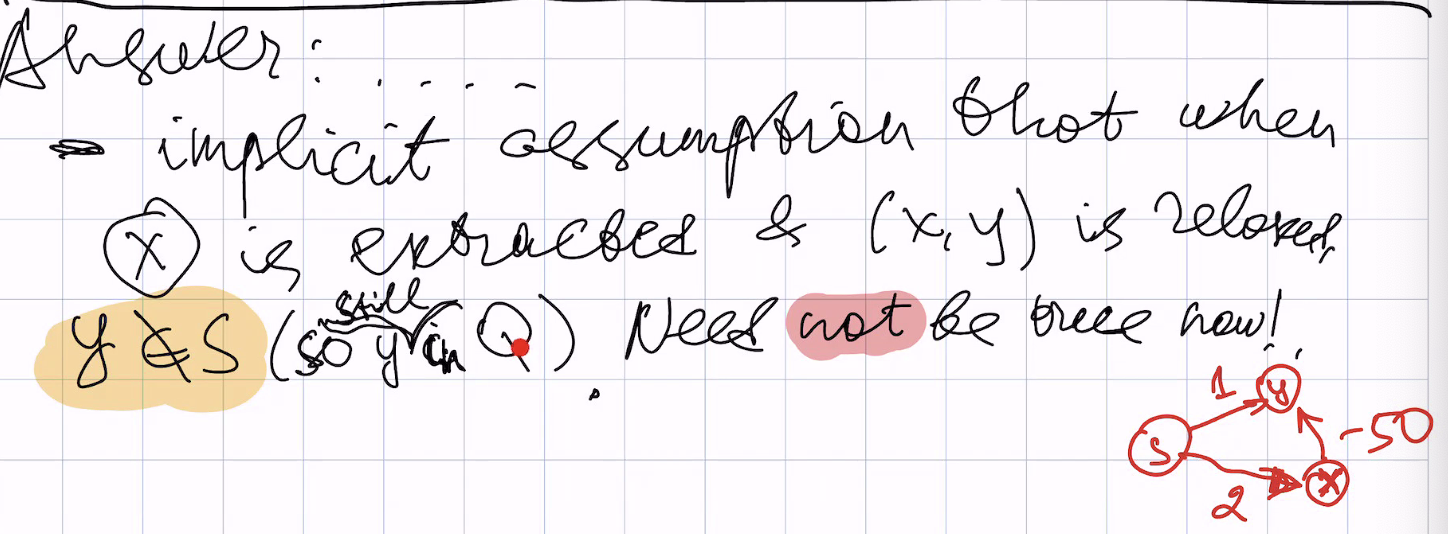 Answer: . . . . .
- implicit assumption that when
(X) is extracted & (x,y) is relaxed,
y ∉ S (so y still in Q). Need not be true now!
1 y
S -50
2 x